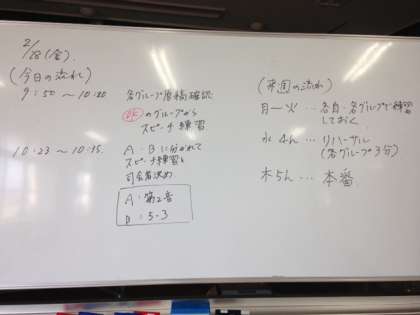 2/28(金).
(今日の流れ)
9:50 ～ 10:20 各グループ原稿確認
OKのグループから
スピーチ練習
10:23 ～ 10:35 A・Bに分かれて
スピーチ練習&
司会者決め
A:第2音
B:5-3
(来週の流れ)
月ー火…各自・各グループで練習
しておく
水4h…リハーサル
(各グループ3分)
木5h…本番